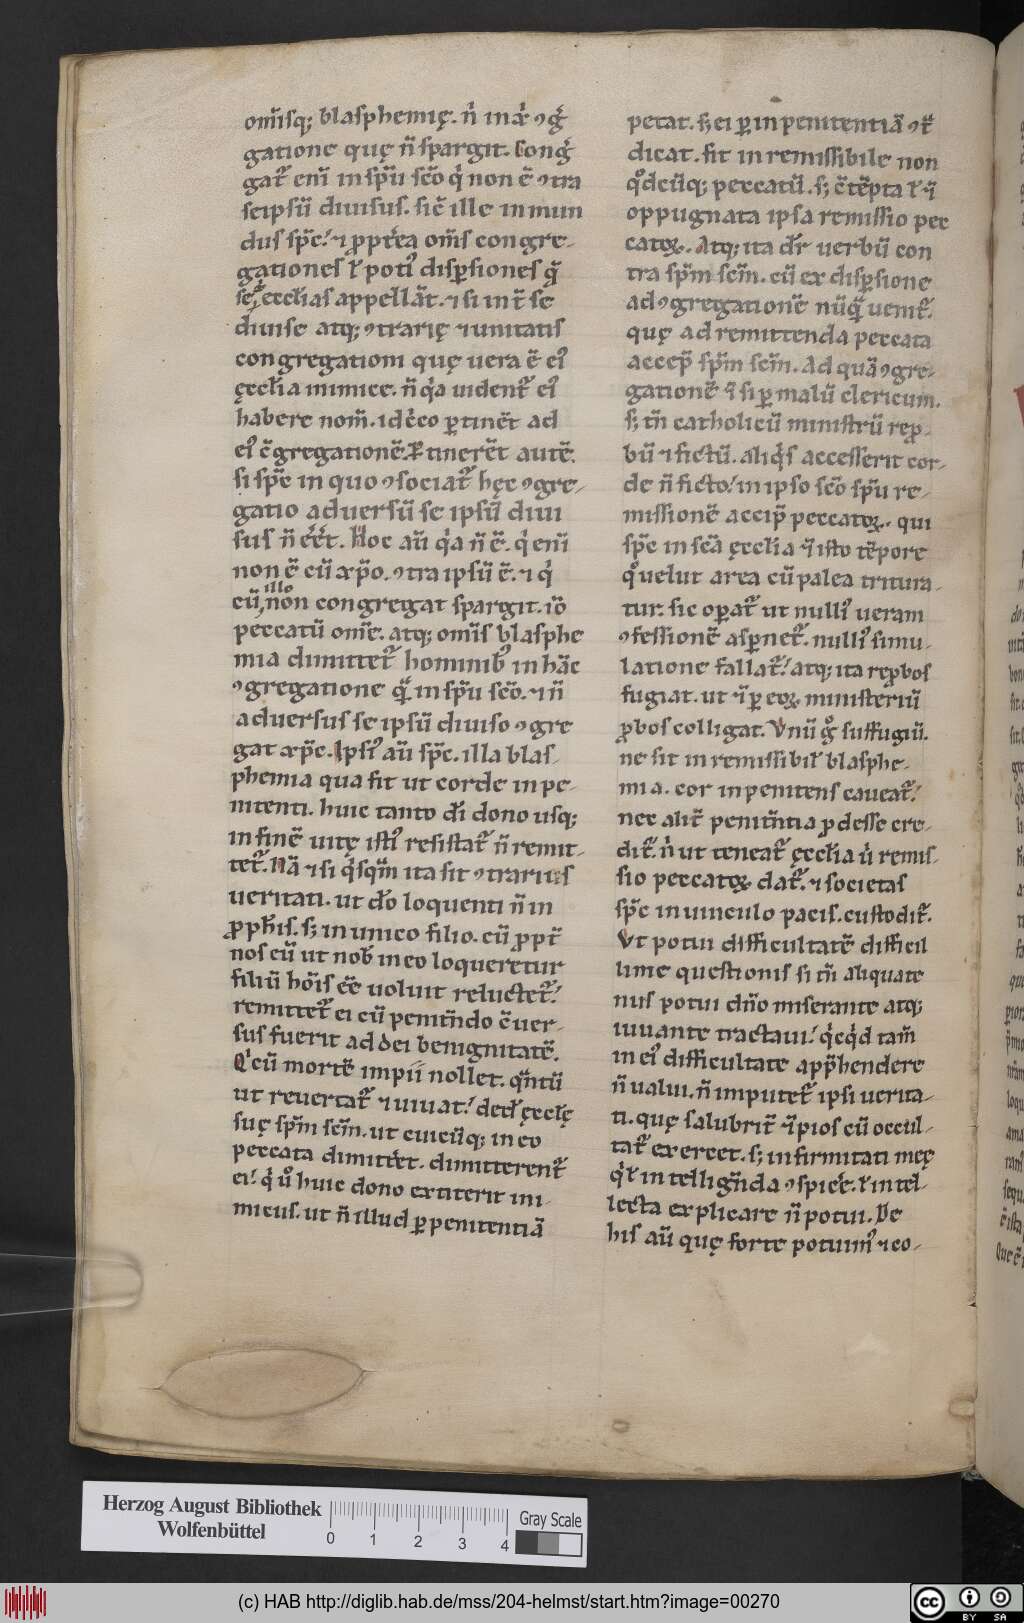 om̅isq; blasphemię. n̅ in aͥ ꝯgͥ
gatione quę n̅ spargit. Congͥ
gat᷑ eni̅ in sp̅u sc̅o qͥ non e̅ ꝯtra
seipsu̅ diuisus. sic̅ ille inmun
dus sp̅c. ⁊ ppt̅ea om̅s congre-
gationes ł poti᷒ disp̲siones q̅
se, ęcclias appella̅t. ⁊ si int̅ se
diuise atq; ꝯtrarię ⁊ unitatis
congregationi quę uera e̅ ei᷒
ęcclia inimice. n̅ qͥa uident᷑ ei᷒
habere nom̅. idcͥco p̲tine̅t ad
ei᷒ c̅gregatione̅. P̲tinere̅t aute̅.
si sp̅c in quo ꝯsociat᷑ hęc ꝯgre-
gatio aduersu̅ se ipsu̅ diui
sus n̅ e̅e̅t. Hoc au̅ qͥa n̅ e̅. qͥ eni̅
non e̅ cu̅ xp̅o. ꝯtra ipsu̅ e̅. ⁊ qͥ
illo
cu̅, non congregat spargit. io̅
peccatu̅ om̅e. atq; om̅is blasphe
mia dimittet᷑ hominib᷒ in ha̅c
ꝯgregatione q̅ in sp̅u sc̅o. ⁊ n̅
aduersus se ipsu̅ diuiso ꝯgre
gat xp̅c. Ipsi᷒ au̅ sp̅c. illa blas-
phemia qua fit ut corde inpe-
nitenti. huic tanto di̅ dono usq;
in fine̅ uitę isti᷒ resistat᷑ n̅ remit-
tet᷑. Na̅ ⁊ si qͥsqm̅ ita sit ꝯtrarius
ueritati. ut do̅ loquenti n̅ in
ꝓph̅is. s; in unico filio. cu̅ ꝓpt̅
nos cu̅ ut nob̅ in eo loqueretur
filiu̅ ho̅is e̅e uoluit reluctet᷑.
remittet᷑ ei cu̅ penitn̅do c̅uer-
sus fuerit ad dei benignitate̅.
Qͥ cu̅ morte̅ impii nollet. qn̅tu̅
ut reuertat᷑ ⁊ uiuat. ded̅ ęcclę
suę sp̅m sc̅m. ut cuicu̅q; in eo
peccata dimittͥet. dimitterent᷑
ei. qͥ uͦ huic dono extiterit ini-
micus. ut n̅ illud p̲ penitentia̅
petat. s; ei p̲ inpenitentia̅ ꝯt̅
dicat. fit inremissibile non
qͦdcu̅q; peccatu̅. s; c̅te̅pta ł ⁊
oppugnata ipsa remissio pec
catoꝝ. Atq; ita dr̅ uerbu̅ con
tra sp̅m sc̅m. cu̅ ex disp̲sione
ad ꝯgregatione̅ nu̅q̅ uenit᷑.
quę ad remittenda peccata
accep̅ sp̅m sc̅m. Ad qua̅ ꝯgre-
gatione̅ ⁊ si p̲ malu̅ clericum.
s; tn̅ catholicu̅ ministru̅ repꝓ-
bu̅ ⁊ fictu̅. aliqͥs accesserit cor-
de n̅ ficto. in ipso sc̅o sp̅u re-
missione̅ accip̅ peccatoꝝ. qui
sp̅c in sc̅a ęcclia ⁊ isto te̅pore
qͦ uelut area cu̅ palea tritura-
tur. sic op̲at᷑ ut nulli᷒ ueram
ꝯfessione̅ asp̲net᷑. nulli᷒ simu-
latione fallat᷑. atq; ita reꝓbos
fugiat. ut ⁊ p̲ eoꝝ ministeriu̅
ꝓbos colligat. Vnu̅ gͦ suffugiu̅.
ne sit inremissibil̅ blasphe-
mia. cor inpenitens caueat᷑.
nec alit̅ penitn̅tia ꝓdesse cre-
dit᷑. nͥ ut teneat᷑ ęcclia uͥ remis-
sio peccatoꝝ dat᷑. ⁊ societas
sp̅c in uinculo pacis. custodit᷑.
Vt potui difficultate̅ difficil
lime questionis si tn̅ aliquate
nus potui dn̅o miserante atq;
iuuante tractaui. qͥcqͥd tam̅
in ei᷒ difficultate app̅hendere
n̅ ualui. n̅ imputet᷑ ipsi uerita-
ti. quę salubrit̅ ⁊ pios cu̅ occul-
tat᷑ exercet. s; infirmitati meę
qͥ ł intellign̅da ꝯspicͥe. ł intel-
lecta explicare n̅ potui. De
his au̅ quę forte potuim᷒ ⁊ co-
Herzog August Bibliothek
Wolfenbüttel
0 1 2 3 4
Gray Scale
(c) HAB http://diglib.hab.de/mss/204-helmst/start.htm?image=00270
cc BY SA